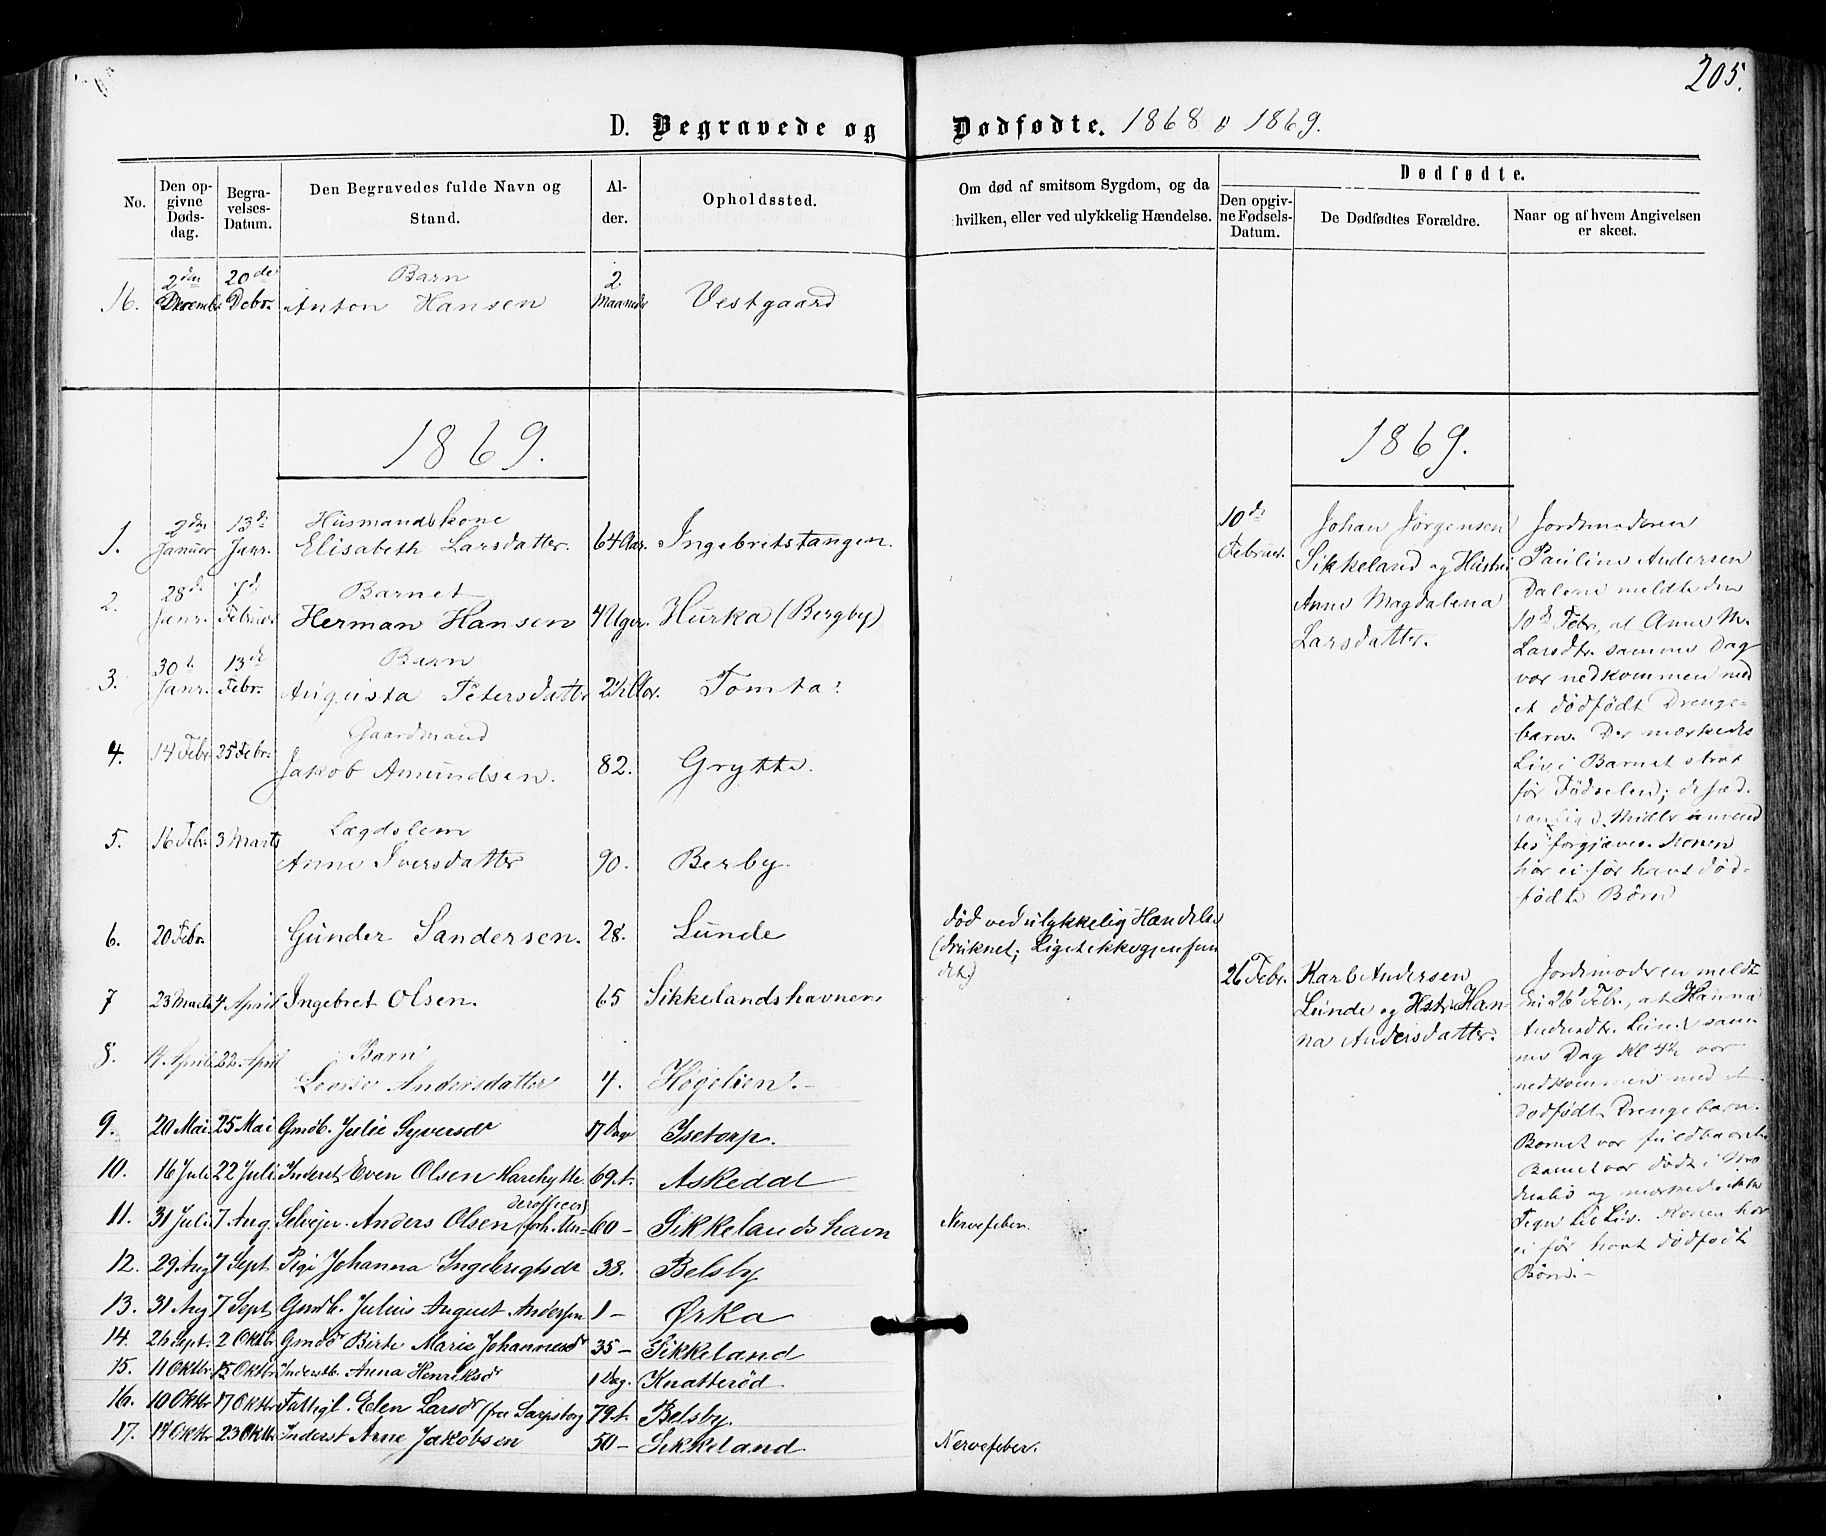 205.
D. Begravede og Dødfødte. 1868 o 1869.
No.
Den opgivne Dødsdag.
Begravelses-Datum.
Den Begravedes fulde Navn og Stand.
Alder.
Opholdssted.
Om død af smitsom Sygdom, og da hvilken, eller ved ulykkelig Hændelse.
Dødfødte.
Den opgivne Fødsels-Datum.
De Dødfødtes Forældre.
Naar og af hvem Angivelsen er skeet.
16. 2den Decembr. 20de Debr. Barn Anton Hansen 2 Maaneder Vestgaard
1869.
1869.
1. 2den Januar 13de Janr. Husmandskone Elisabeth Larsdatter. 64 Aar. Ingebretstangen.
2. 28de Janr. 7d Februar Barnet Herman Hansen 4 Uger. Hurka (Bergby)
3. 30t Janr. 13de Febr. Barn Augusta Petersdatter 2½ Aar. Tomta
4. 14 Febr 25 Febr. Gaardmand Jakob Amundsen. 82. Grytte.
5. 16 Febr. 3 Marts Lægdslem Anne Iversdatter 90. Berby.
6. 20 Febr. Gunder Sandersen. 28. Lunde
død ved ulykkelig Hændelse
(druknet; Liget ikke gjenfun
det.)
7 23 Marts 4 April Ingebret Olsen. 65 Sikkelandshavnen
8. 14 April 22 April Barn Lovise Andersdatter 4. Høgelien.
9. 20 Mai 25 Mai Gmdb. Julie Syversdr 17 Dage Isetorp.
10. 16 Juli 22 Juli Inderst Even Olsen Harehytte. 69 A. Askedal
11. 31 Juli 7 Aug Selveier Anders Olsen (forh. Un-
derofficer) 60 - Sikkelandshavn Nervefeber.
12. 29 Aug 7 Sept. Pige Johanna Ingebrigtsdr 38. Belsby
13. 31 Aug 7 Sept. Gmdb. Julius August Andersen 1 - Ørka
14. 26 Sept. 2 Oktbr. Gmdd Birte Marie Johannesdr 35 - Sikkeland
15. 11 Oktbr 15 Oktbr. Inderstb. Anna Henriksdr 1 Dag. Knatterød
16. 10 Oktbr 17 Oktbr Fattigl. Elen Larsdr (fra Sarpsborg 79 A. Belsby.
17. 14 Oktbr 23 Oktbr. Inderst Arne Jakobsen 50 - Sikkeland Nervefeber.
10de Februar.
Johan Jørgensen
Sikkeland og Hustru
Anne Magdalena
Larsdatter.
Jordemoderen
Pauline Andersen
Dalene meldte den
10de Febr., at Anne M.
Larsdtr. samme Dag
var nedkommen med
et dødfødt Drenge-
barn. Der mærkedes
Liv i Barnet strax
før Fødselen; de sæd-
vanlige Midler anvend
tes forgjæves. Konen
har ei før havt død-
fødte Børn
26 Febr.
Karl Andersen
Lunde og Hstr. Han-
na Andersdatter.
Jordemoderen meldte
den 26 Febr., at Hanna
Andersdtr. Lunde sam-
me Dag Kl 4½ var
nedkommen med et
dødfødt Drengebarn.
Barnet var fuldbaaret.
Barnet var dødt i
og mærkedes ikke
Tegn til Liv. Konen har
ei før havt dødfødte
Børn. -